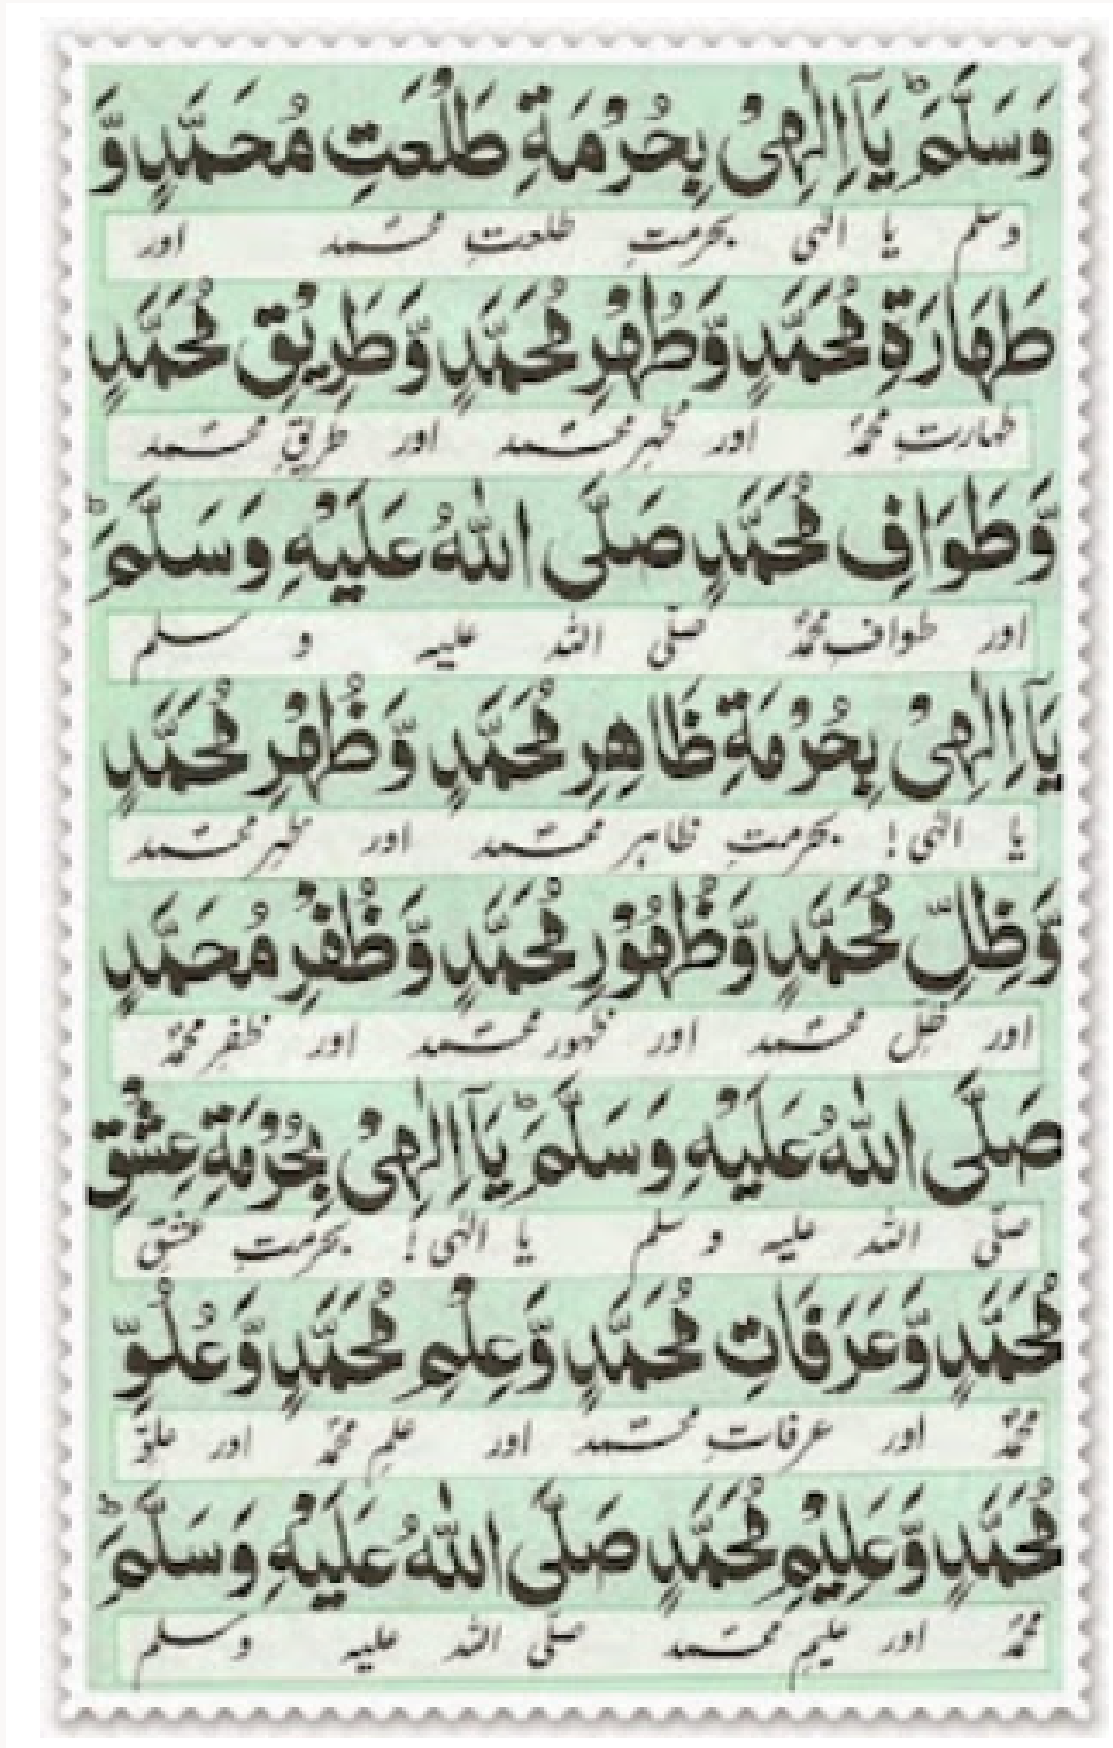 وَسَلَّمَ ؕ يَآ اِلٰهِيْ بِحُرْمَةِ طَلْعَتِ مُحَمَّدٍ وَّ
وسلم یا الٰہی بحرمتِ طلعتِ محمّد اور
طَهَارَةِ مُحَمَّدٍ وَّطُهْرِ مُحَمَّدٍ وَّطَرِيْقِ مُحَمَّدٍ
طہارتِ محمّدؐ اور طہرِ محمّد اور طریقِ محمّد
وَّطَوَافِ مُحَمَّدٍ صَلَّى اللّٰهُ عَلَيْهِ وَسَلَّمَ ؕ
اور طوافِ محمّدؐ صلّی اللہ علیہ و سلم
يَآ اِلٰهِيْ بِحُرْمَةِ ظَاهِرِ مُحَمَّدٍ وَّظُهْرِ مُحَمَّدٍ
یا الٰہی! بحرمتِ ظاہرِ محمّد اور ظہرِ محمّد
وَّظِلِّ مُحَمَّدٍ وَّظُهُوْرِ مُحَمَّدٍ وَّظُفْرِ مُحَمَّدٍ
اور ظلِّ محمّد اور ظہورِ محمّد اور ظفرِ محمّدؐ
صَلَّى اللّٰهُ عَلَيْهِ وَسَلَّمَ ؕ يَآ اِلٰهِيْ بِحُرْمَةِ عِشْقِ
صلّی اللہ علیہ وسلم یا الٰہی! بحرمتِ عشقِ
مُحَمَّدٍ وَّعَرَفَاتِ مُحَمَّدٍ وَّعِلْمِ مُحَمَّدٍ وَّعُلُوِّ
محمّدؐ اور عرفاتِ محمّد اور علمِ محمّدؐ اور علوِّ
مُحَمَّدٍ وَّعَلِيْمِ مُحَمَّدٍ صَلَّى اللّٰهُ عَلَيْهِ وَسَلَّمَ ؕ
محمّدؐ اور علیمِ محمّد صلّی اللہ علیہ وسلم